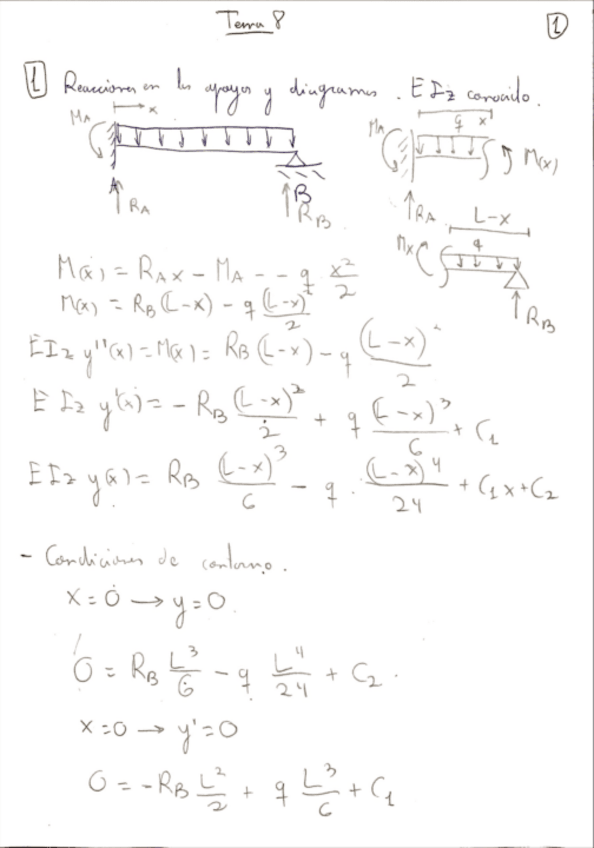 Tema 8
1
1 Reacciones en los apoyos y diagramas. E Iz conocido.
x
MA
A
RA
B
RB
q x
MA
M(x)
RA
L-x
q
Mx
RB
M(x) = RA x - MA - - q x²/2
M(x) = RB (L-x) - q (L-x)²/2
E Iz y''(x) = M(x) = RB (L-x) - q (L-x)²/2
E Iz y'(x) = - RB (L-x)²/2 + q (L-x)³/6 + C1
E Iz y(x) = RB (L-x)³/6 - q · (L-x)⁴/24 + C1 x + C2
- Condiciones de contorno.
x = 0 → y = 0
0 = RB L³/6 - q L⁴/24 + C2.
x = 0 → y' = 0
0 = -RB L²/2 + q L³/6 + C1